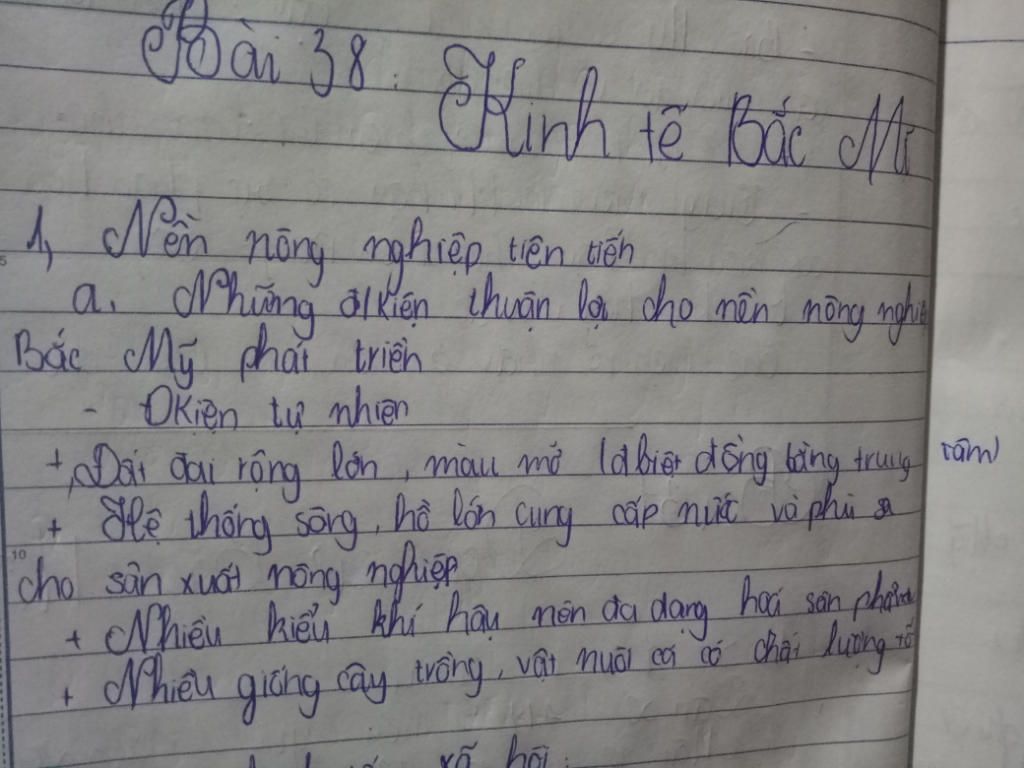 Bài 38: Kinh tế Bắc Mĩ
1, Nền nông nghiệp tiên tiến
a. Những đ/kiện thuận lợi cho nền nông nghiệ
Bắc Mỹ phát triển
- Đkiện tự nhiên
+, Đất đai rộng lớn, màu mỡ (đbiệt đồng bằng trung tâm)
+ Hệ thống sông, hồ lớn cung cấp nước và phù sa
cho sản xuất nông nghiệp
+ Nhiều kiểu khí hậu nên đa dạng hoá sản phẩm
+ Nhiều giống cây trồng, vật nuôi có chất lượng tố
xã hội